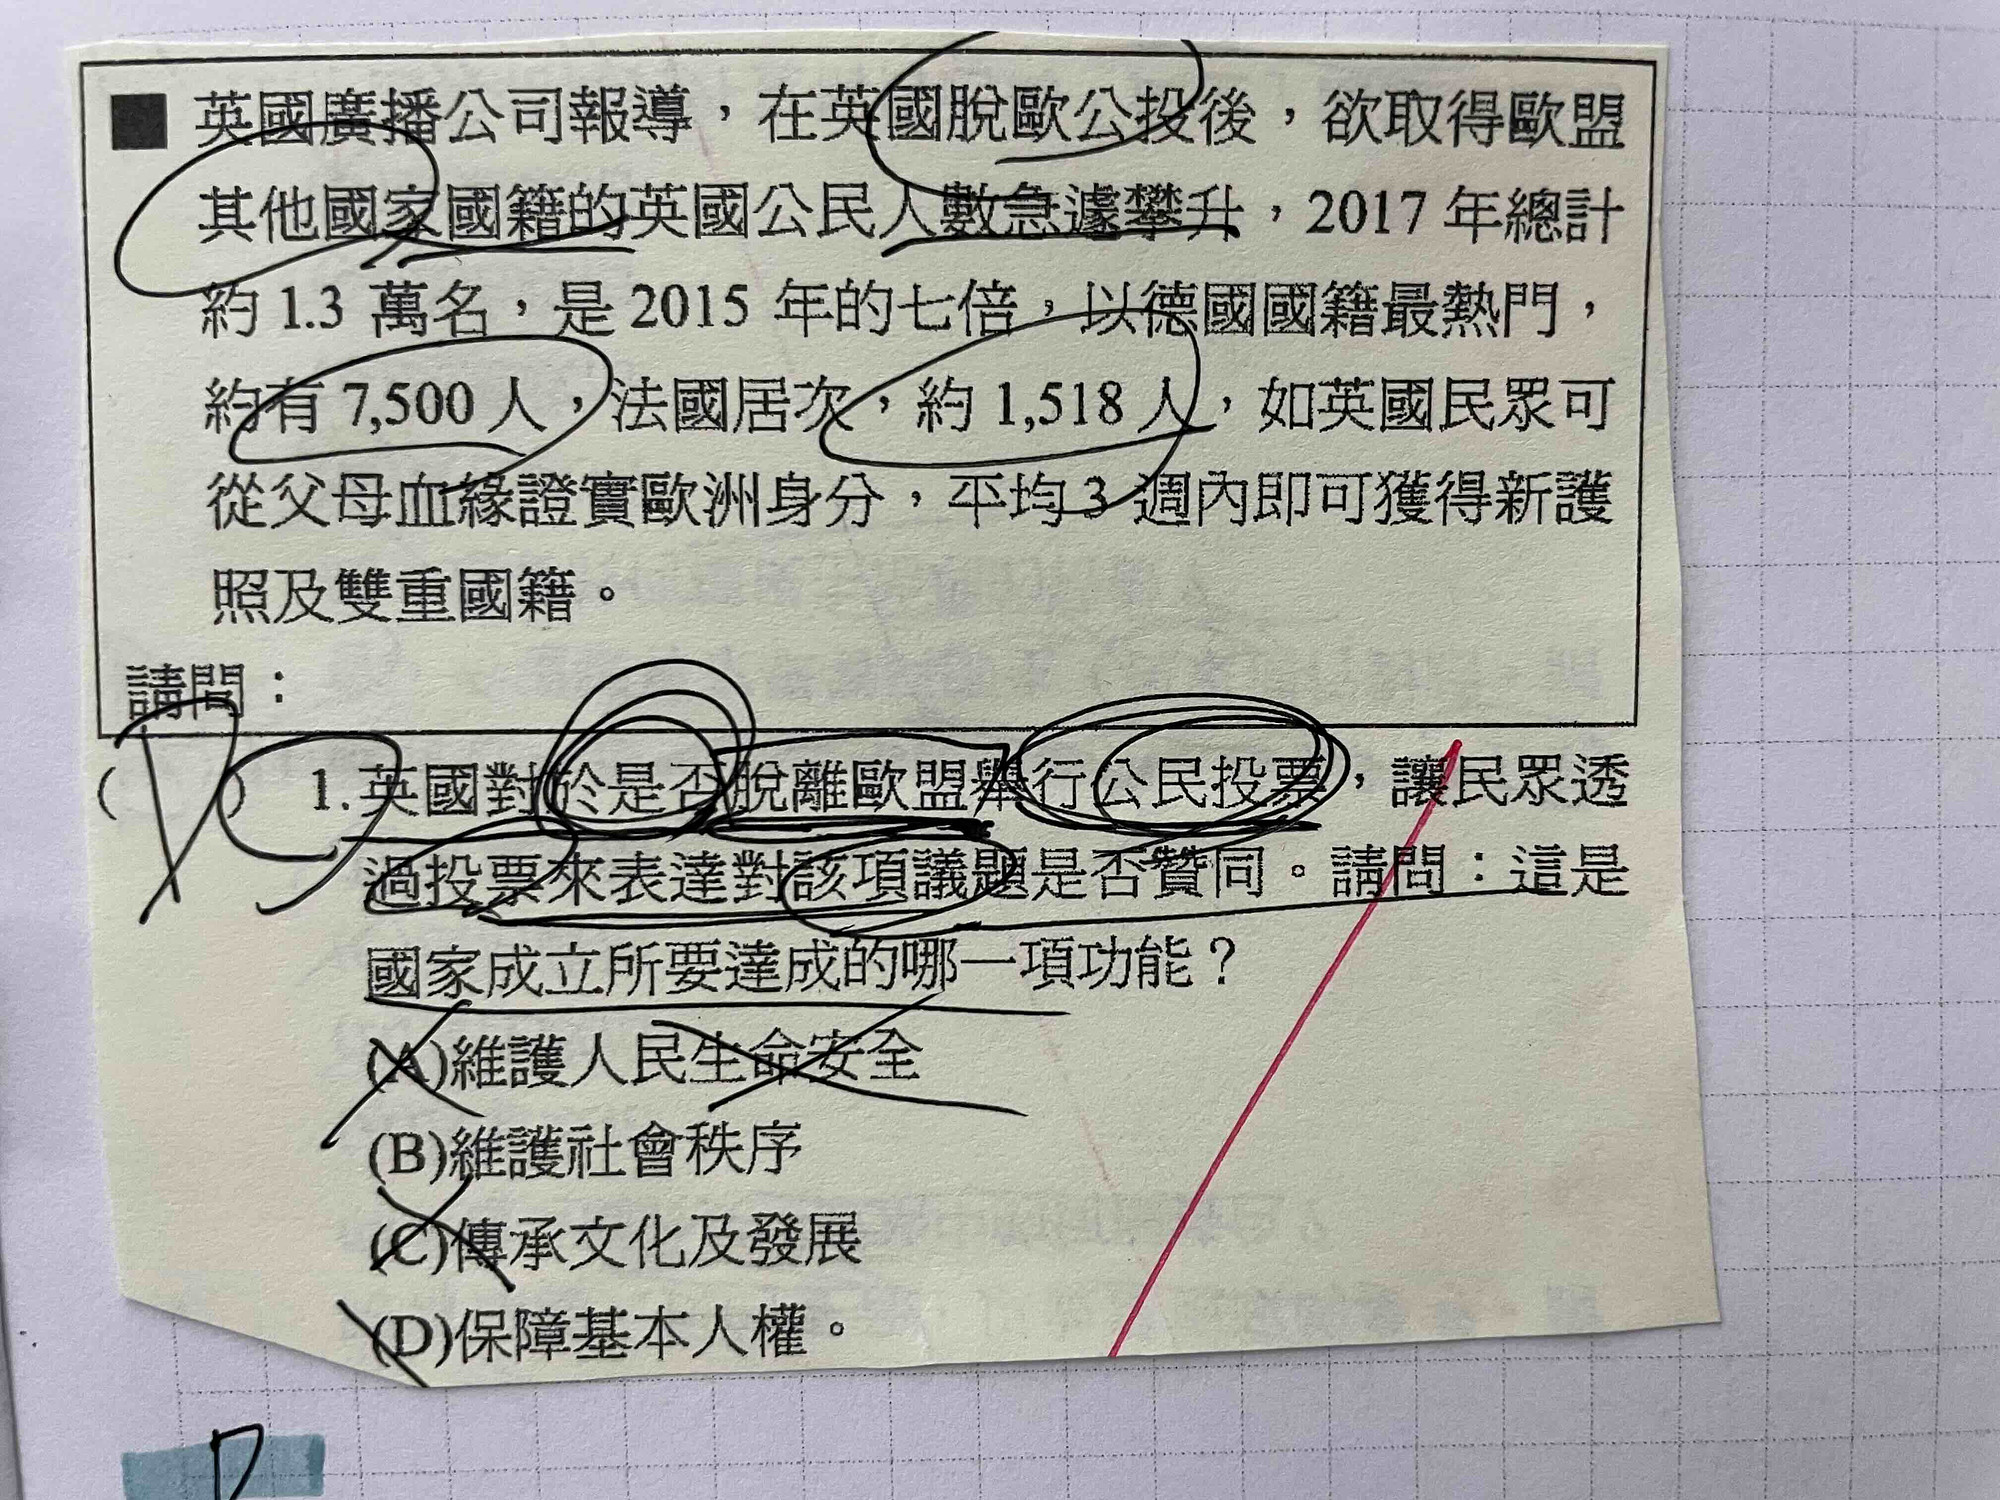 ■ 英國廣播公司報導，在英國脫歐公投後，欲取得歐盟
其他國家國籍的英國公民人數急遽攀升，2017 年總計
約 1.3 萬名，是 2015 年的七倍，以德國國籍最熱門，
約有 7,500 人，法國居次，約 1,518 人，如英國民眾可
從父母血緣證實歐洲身分，平均 3 週內即可獲得新護
照及雙重國籍。
請問：
( ) 1. 英國對於是否脫離歐盟舉行公民投票，讓民眾透
過投票來表達對該項議題是否贊同。請問：這是
國家成立所要達成的哪一項功能？
(A)維護人民生命安全
(B)維護社會秩序
(C)傳承文化及發展
(D)保障基本人權。